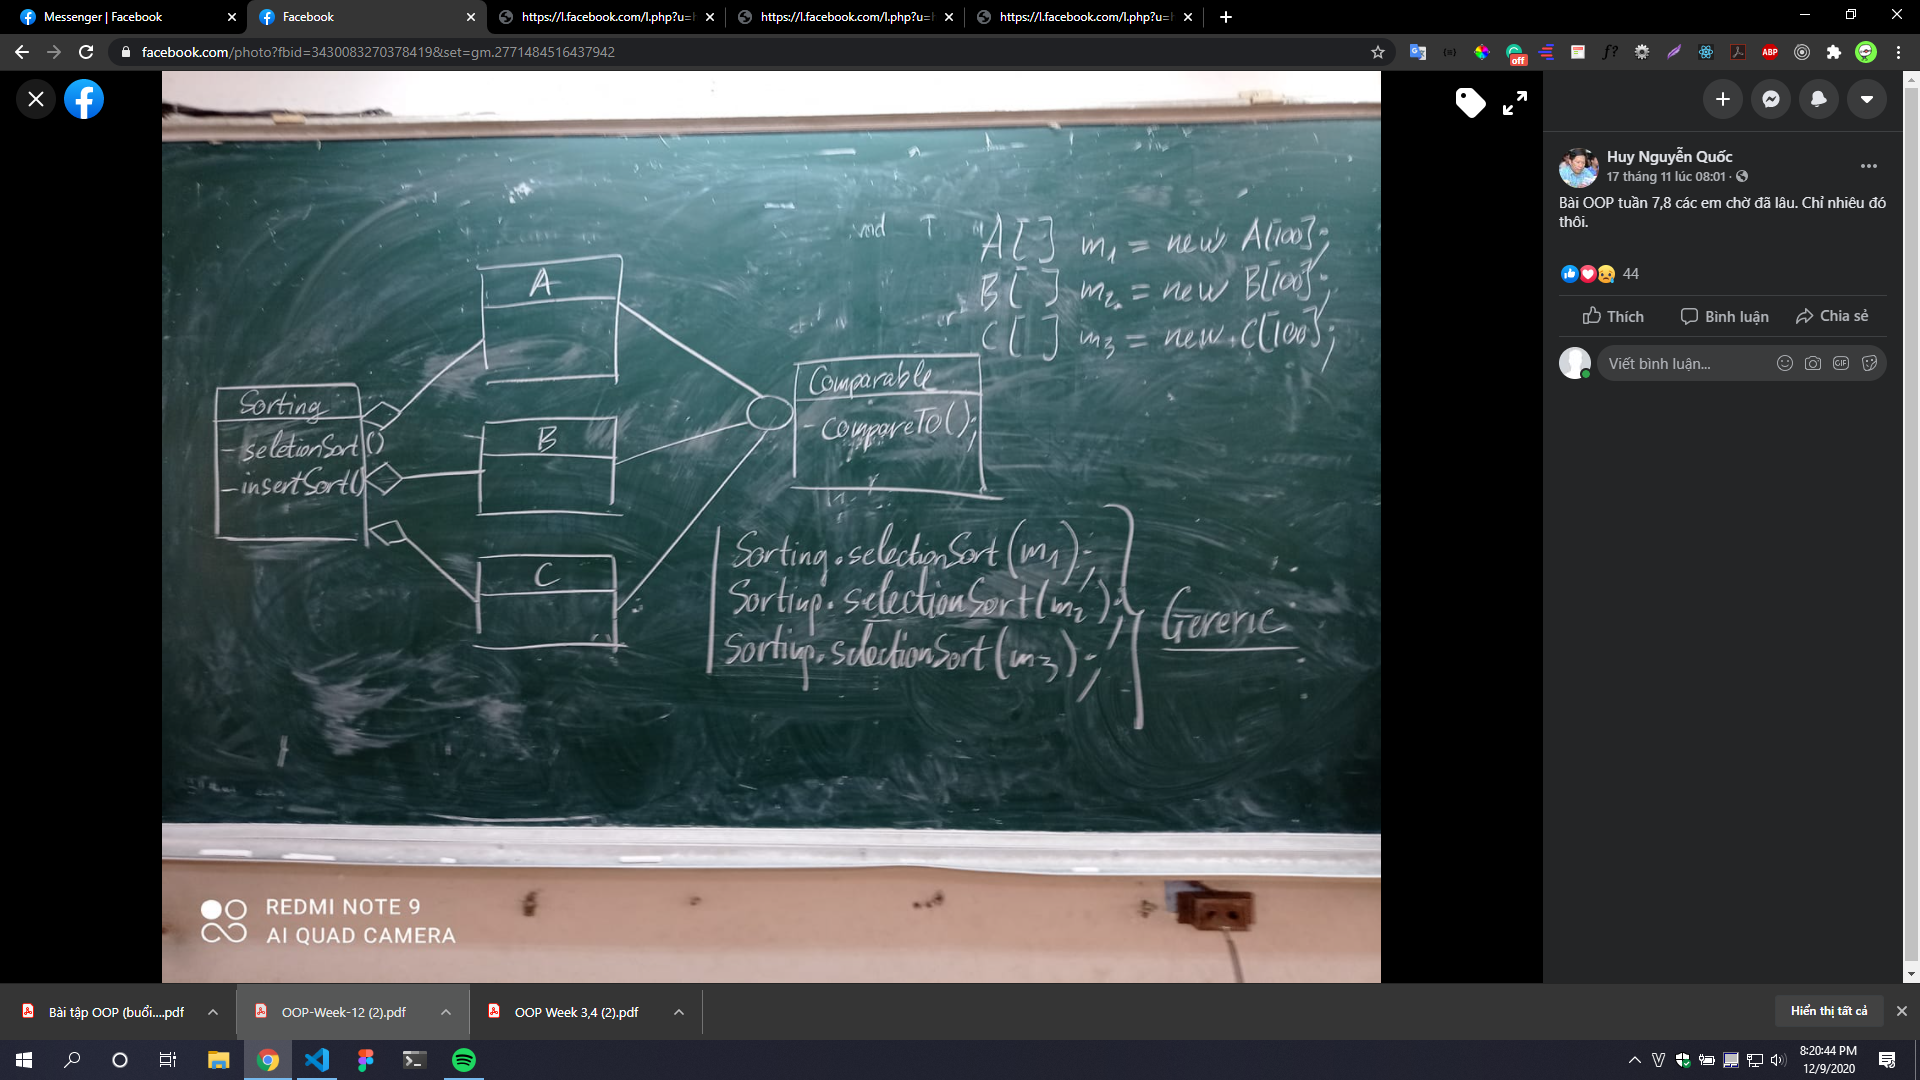 Messenger | Facebook
Facebook
https://l.facebook.com/l.php?u=
https://l.facebook.com/l.php?u=
https://l.facebook.com/l.php?u=
facebook.com/photo?fbid=3430083270378419&set=gm.2771484516437942
off
ABP
A[ ] m1 = new A[100];
B[ ] m2 = new B[100];
C[ ] m3 = new C[100];
A
Sorting
- seletionSort()
- insertSort()
B
C
Comparable
- compareTO();
Sorting.selectionSort(m1);
Sorting.selectionSort(m2);
Sorting.selectionSort(m3);
Generic
REDMI NOTE 9
AI QUAD CAMERA
Huy Nguyễn Quốc
17 tháng 11 lúc 08:01 ·
Bài OOP tuần 7,8 các em chờ đã lâu. Chỉ nhiêu đó
thôi.
44
Thích
Bình luận
Chia sẻ
Viết bình luận...
GIF
Bài tập OOP (buổi....pdf
OOP-Week-12 (2).pdf
OOP Week 3,4 (2).pdf
Hiển thị tất cả
8:20:44 PM
12/9/2020